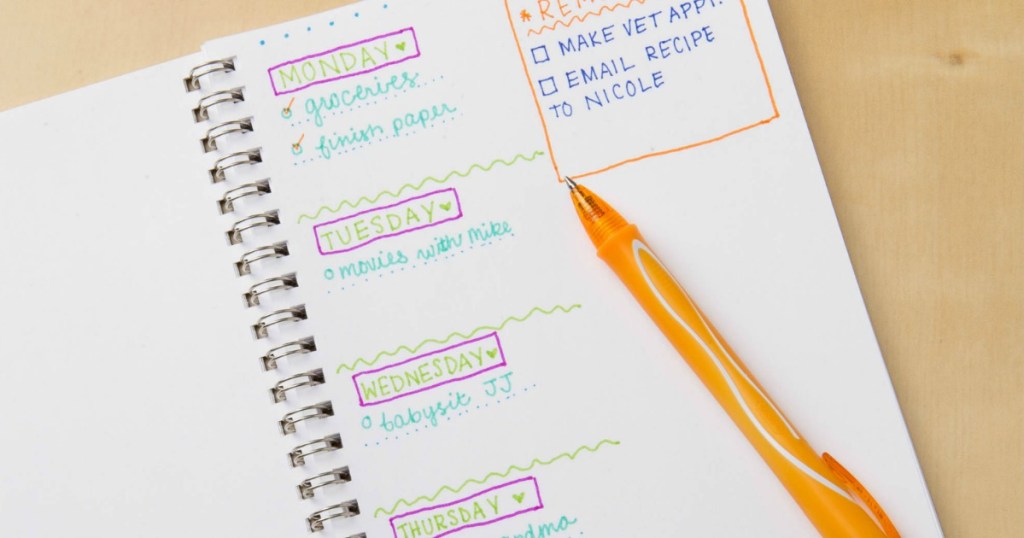 MONDAY
groceries
finish paper
TUESDAY
movies with Mike
WEDNESDAY
babysit JJ
THURSDAY
MAKE VET APPT.
EMAIL RECIPE
TO NICOLE